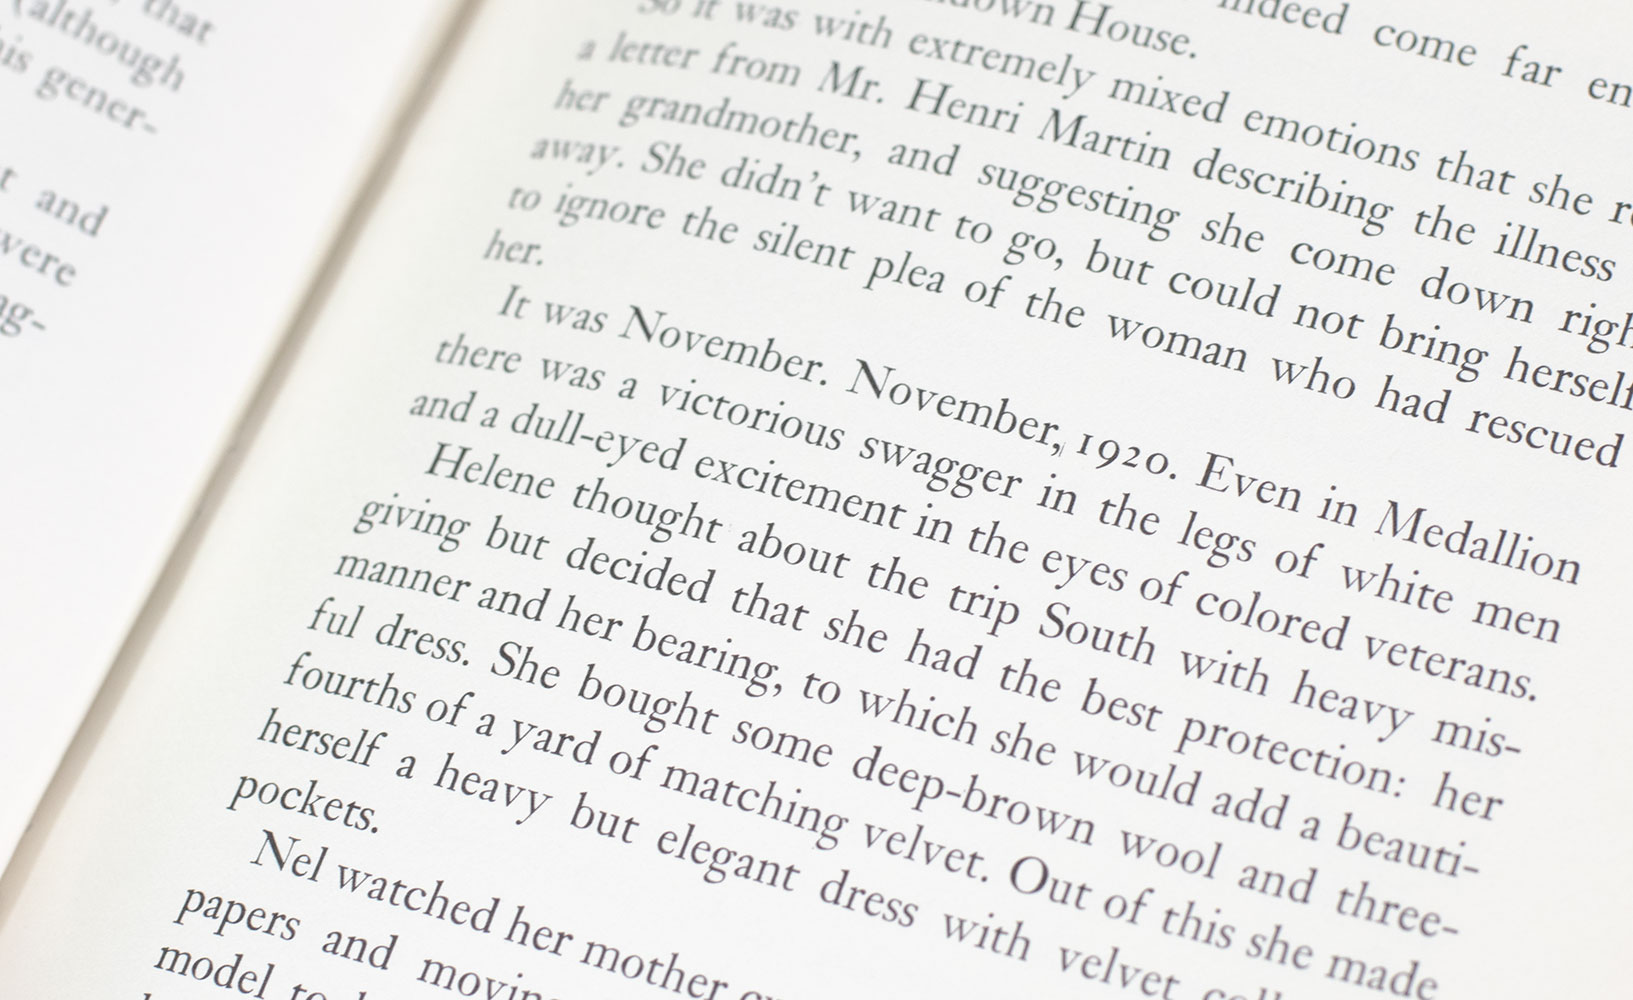 that
(although
gener-
and
were
indeed come far
House.
So it was with extremely mixed emotions that she
a letter from Mr. Henri Martin describing the illness
her grandmother, and suggesting she come down
away. She didn't want to go, but could not bring herself
to ignore the silent plea of the woman who had rescued
her.
It was November. November, 1920. Even in Medallion
there was a victorious swagger in the legs of white men
and a dull-eyed excitement in the eyes of colored veterans.
Helene thought about the trip South with heavy mis-
giving but decided that she had the best protection: her
manner and her bearing, to which she would add a beauti-
ful dress. She bought some deep-brown wool and three-
fourths of a yard of matching velvet. Out of this she made
herself a heavy but elegant dress with velvet
pockets.
Nel watched her mother
papers and
model to